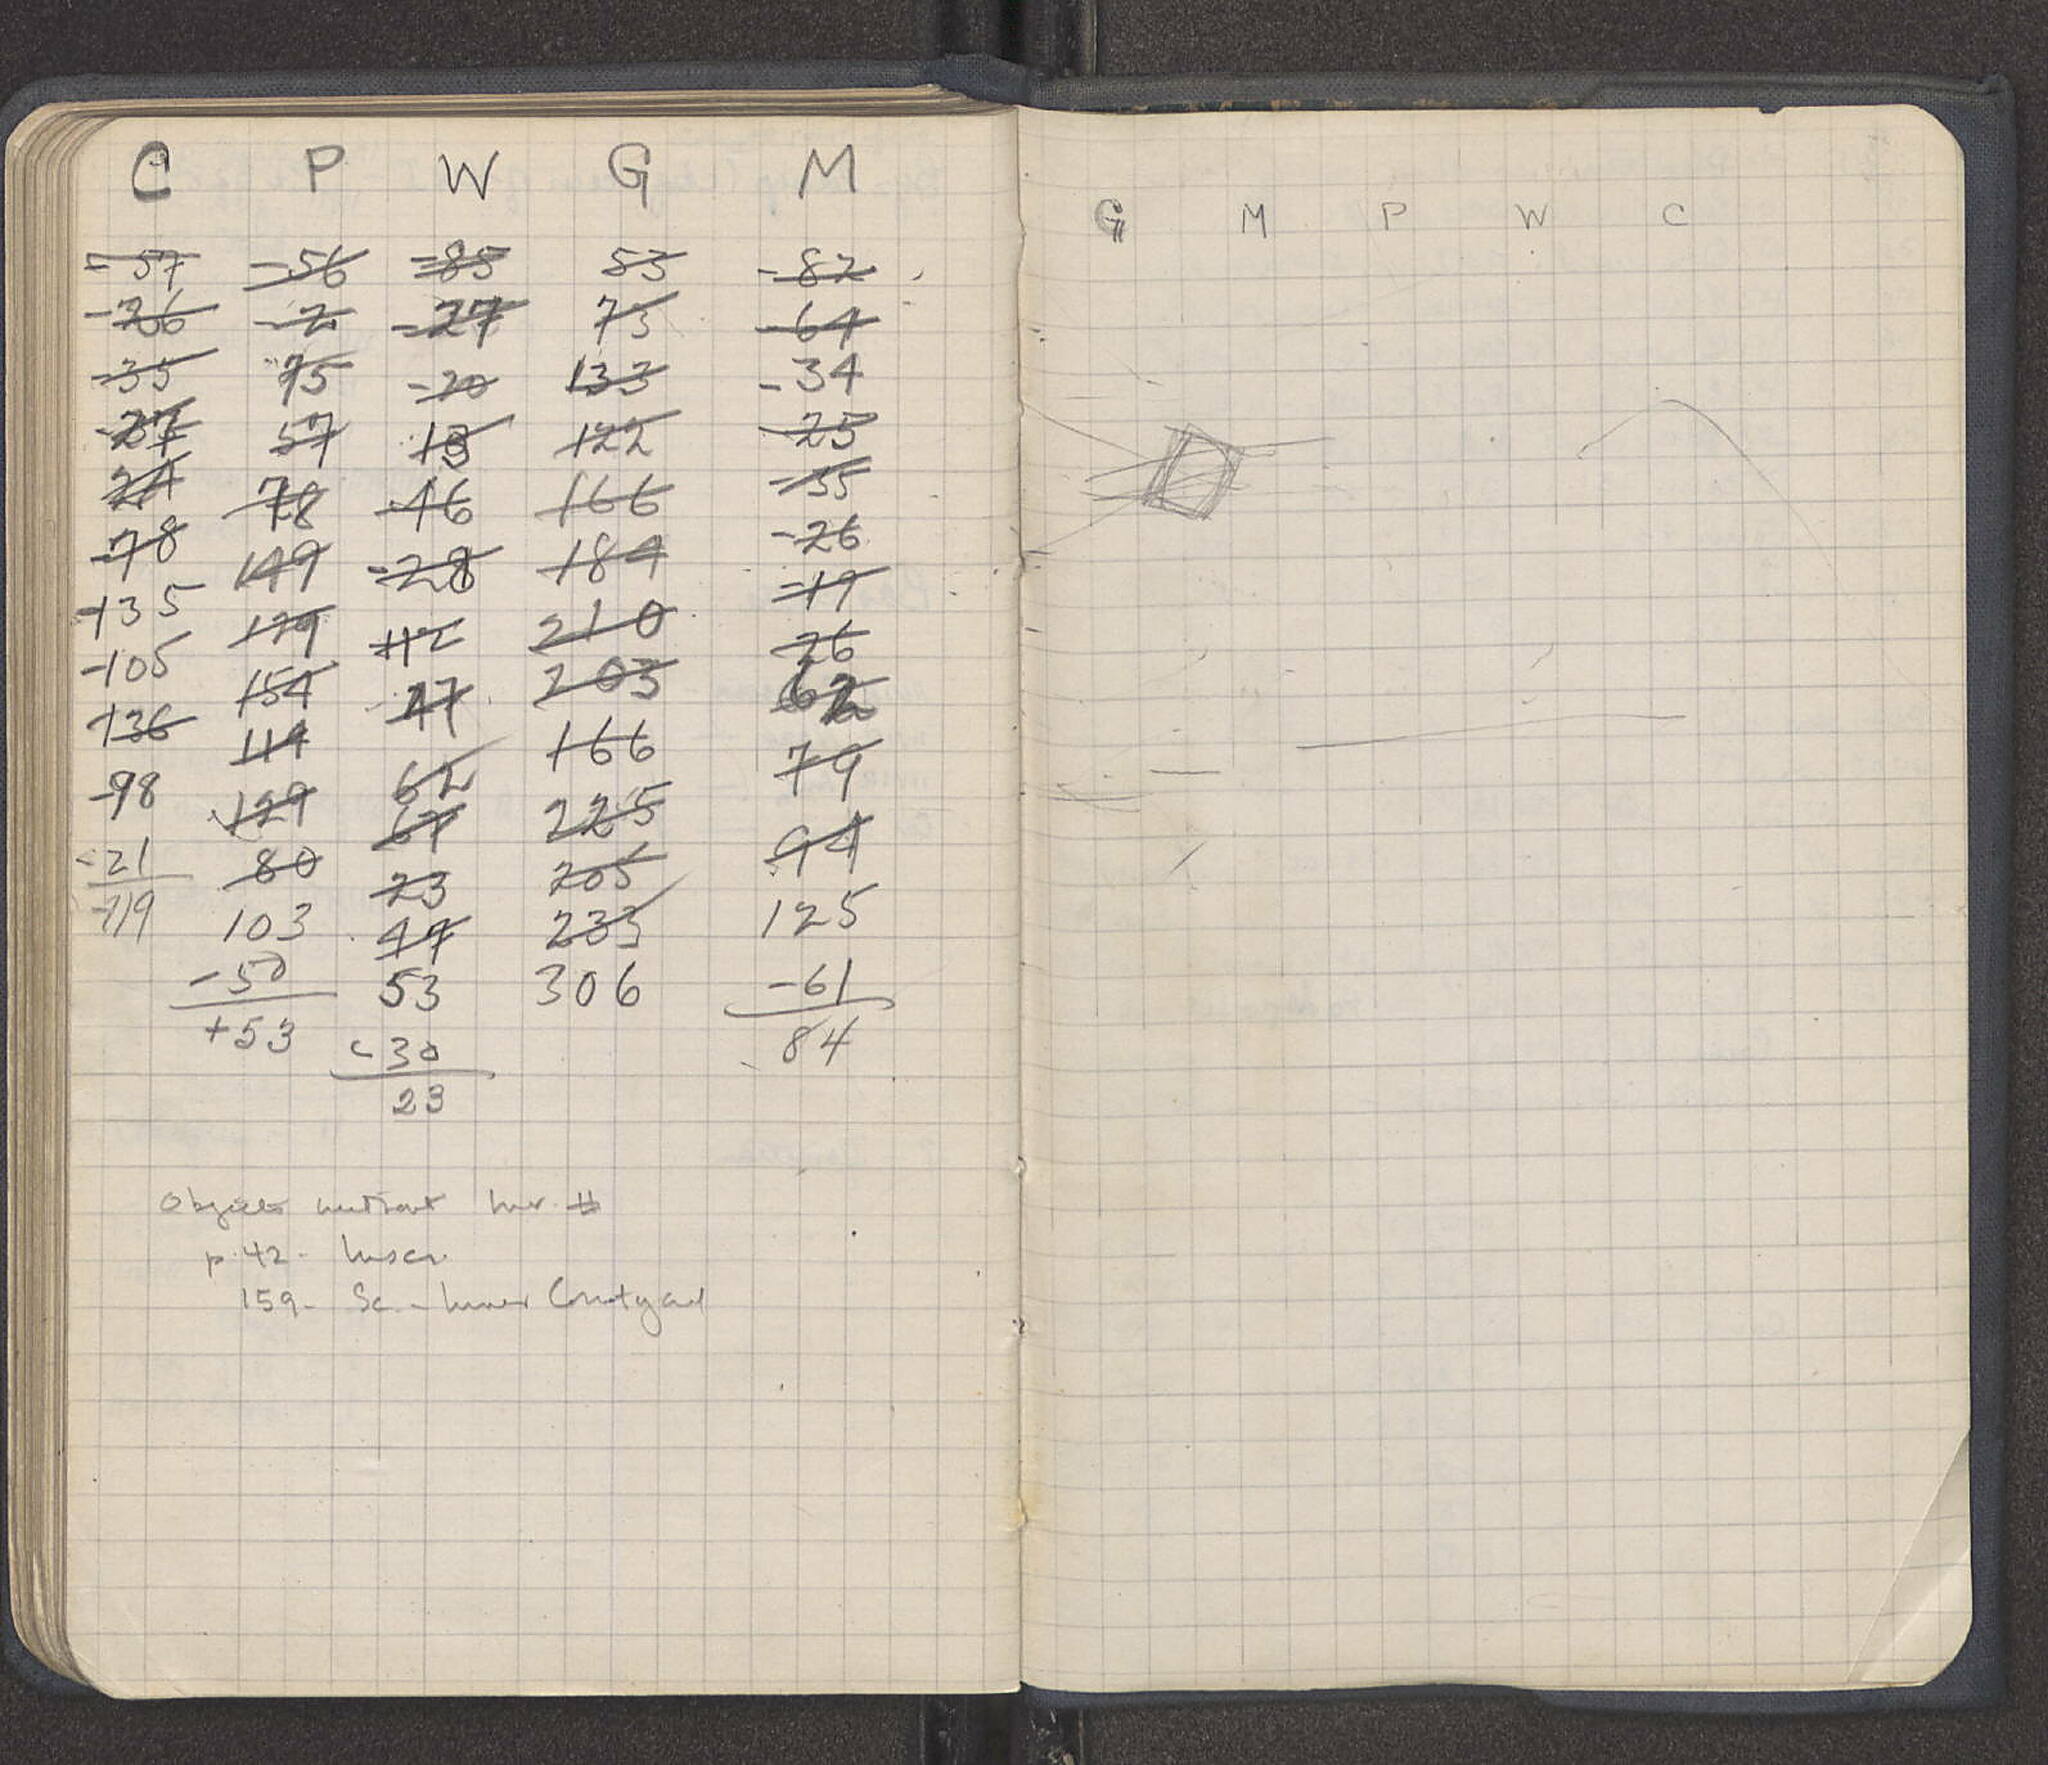 C P W G M
-57 -56 -85 53 -82
-26 -2 -27 73 -64
-35 75 -20 133 -34
-27 57 13 122 -25
24 78 -46 166 -35
-78 149 -28 184 -26
-135 129 112 210 -19
-105 154 47 203 26
-136 119 62 166 62
-98 129 67 225 79
-21 80 23 205 94
-119 103 47 233 125
-50 53 306 -61
+53 -30 84
23
Objects without Inv. #
p. 42 - Inscr.
159 - Sc. - Inner Courtyard
G M P W C